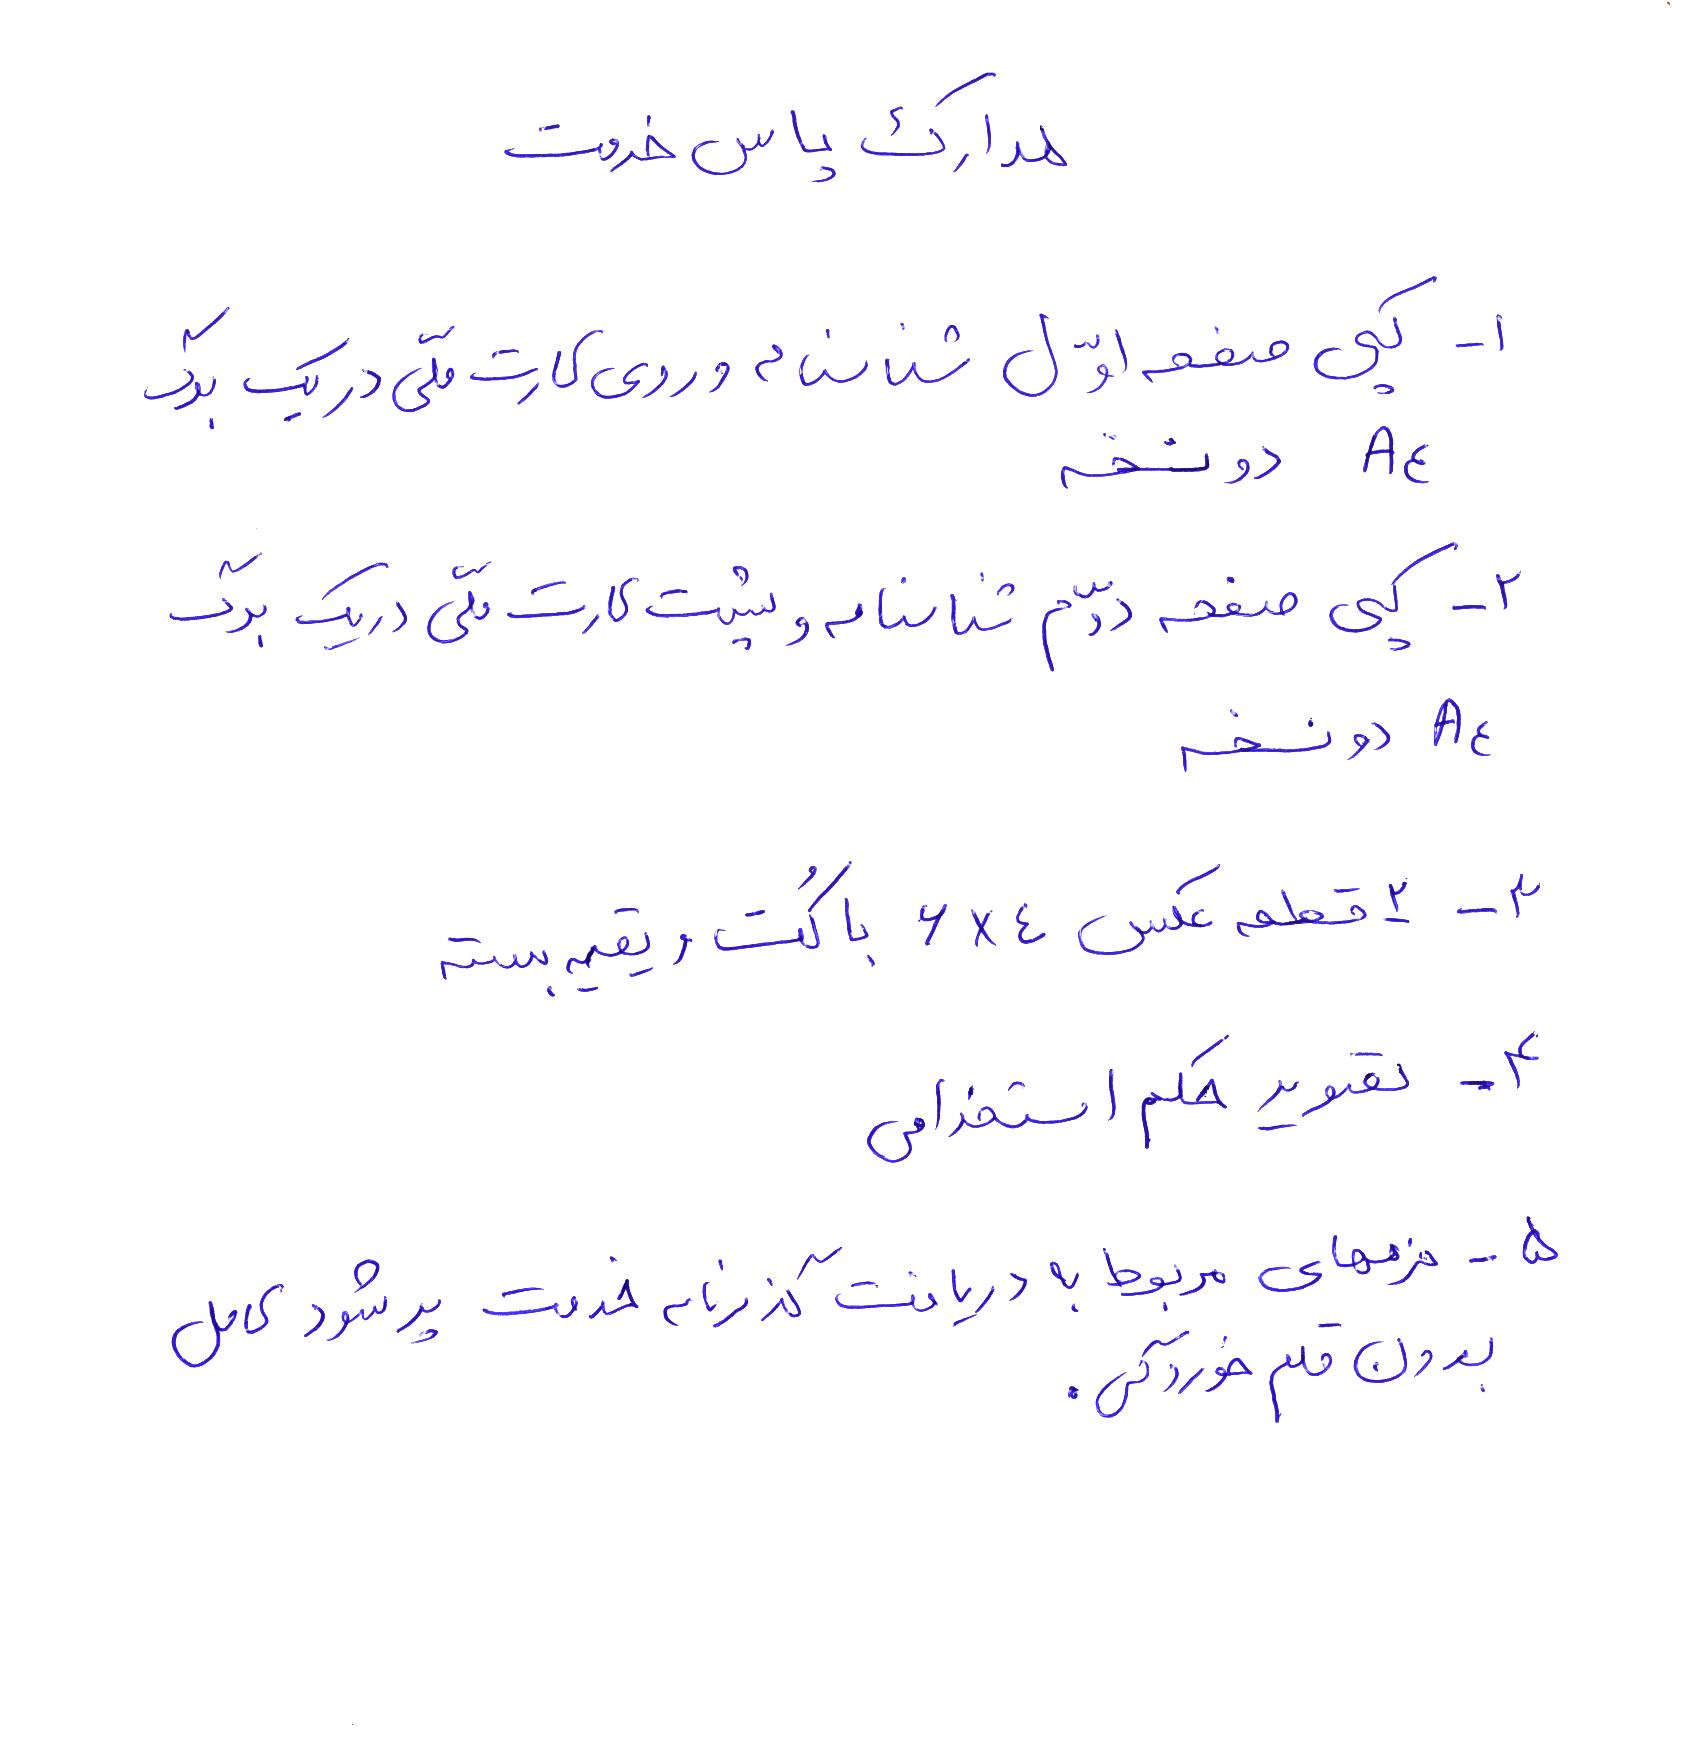 مدارک پاس خدمت
۱- کپی صفحه اوّل شناسنامه و روی کارت ملّی در یک برگ
A٤ دو نسخه
۲- کپی صفحه دوّم شناسنامه و پشت کارت ملّی در یک برگ
A٤ دو نسخه
۳- ۲ قطعه عکس ٤×۶ با کُت و یقیه بسته
۴- تصویر حکم استخدامی
۵- فرمهای مربوط به دریافت گذرنامه خدمت پر شود کامل
بدون قلم خوردگی.